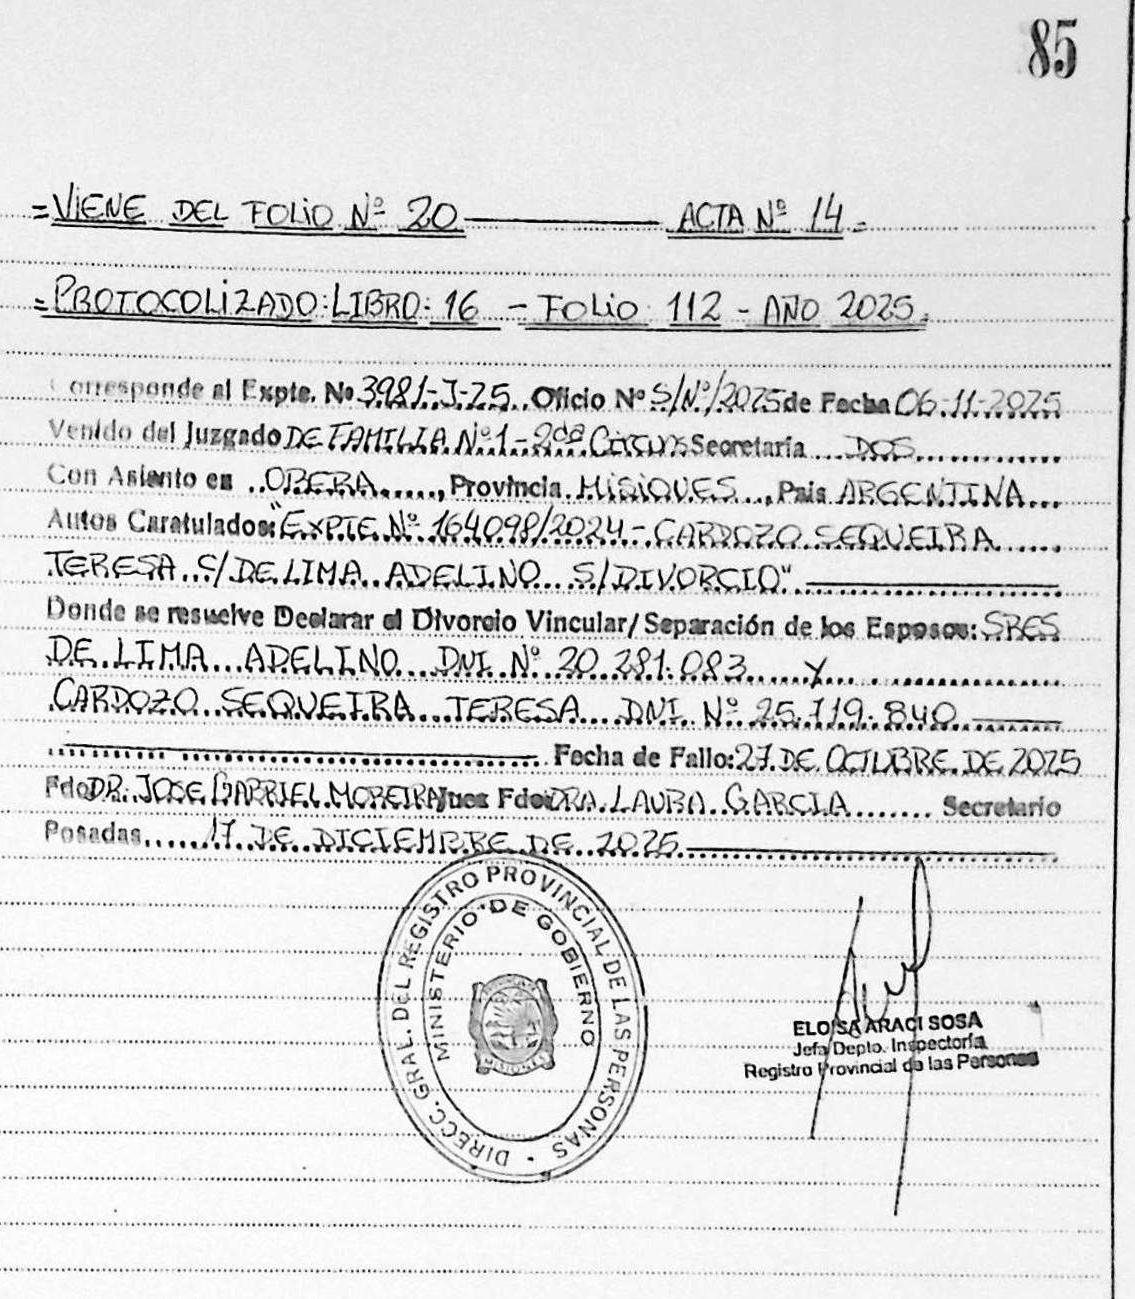 85
=VIENE DEL FOLIO Nº 20 ACTA Nº 14=
=PROTOCOLIZADO: LIBRO: 16 - FOLIO 112 - AÑO 2025.
Corresponde al Expte. Nº 3981-J-25.. Oficio Nº S/Nº/2025 de Fecha 06-11-2025
Venido del Juzgado DE FAMILIA Nº 1-2da CIRCUNS Secretaría ...DOS.............
Con Asiento en ..OBERA....., Provincia MISIONES..., Pais ARGENTINA...
Autos Caratulados: "EXPTE Nº 164098/2024- CARDOZO SEQUEIRA......
TERESA C/DE LIMA ADELINO S/DIVORCIO"
Donde se resuelve Declarar el Divorcio Vincular/Separación de los Esposos: SRES
DE LIMA ADELINO DNI Nº 20.281.083 Y
CARDOZO SEQUEIRA TERESA DNI Nº 25.119.840
Fecha de Fallo: 27 DE OCTUBRE DE 2025
Fdo DR. JOSE GABRIEL MOREIRA Juez Fdo: DRA. LAURA GARCIA ........ Secretario
Posadas, ...17 DE DICIEMBRE DE 2025
DIRECC. GRAL. DEL REGISTRO PROVINCIAL DE LAS PERSONAS
MINISTERIO DE GOBIERNO
MISIONES
ELOISA ARACI SOSA
Jefa Depto. Inspectoría
Registro Provincial de las Personas